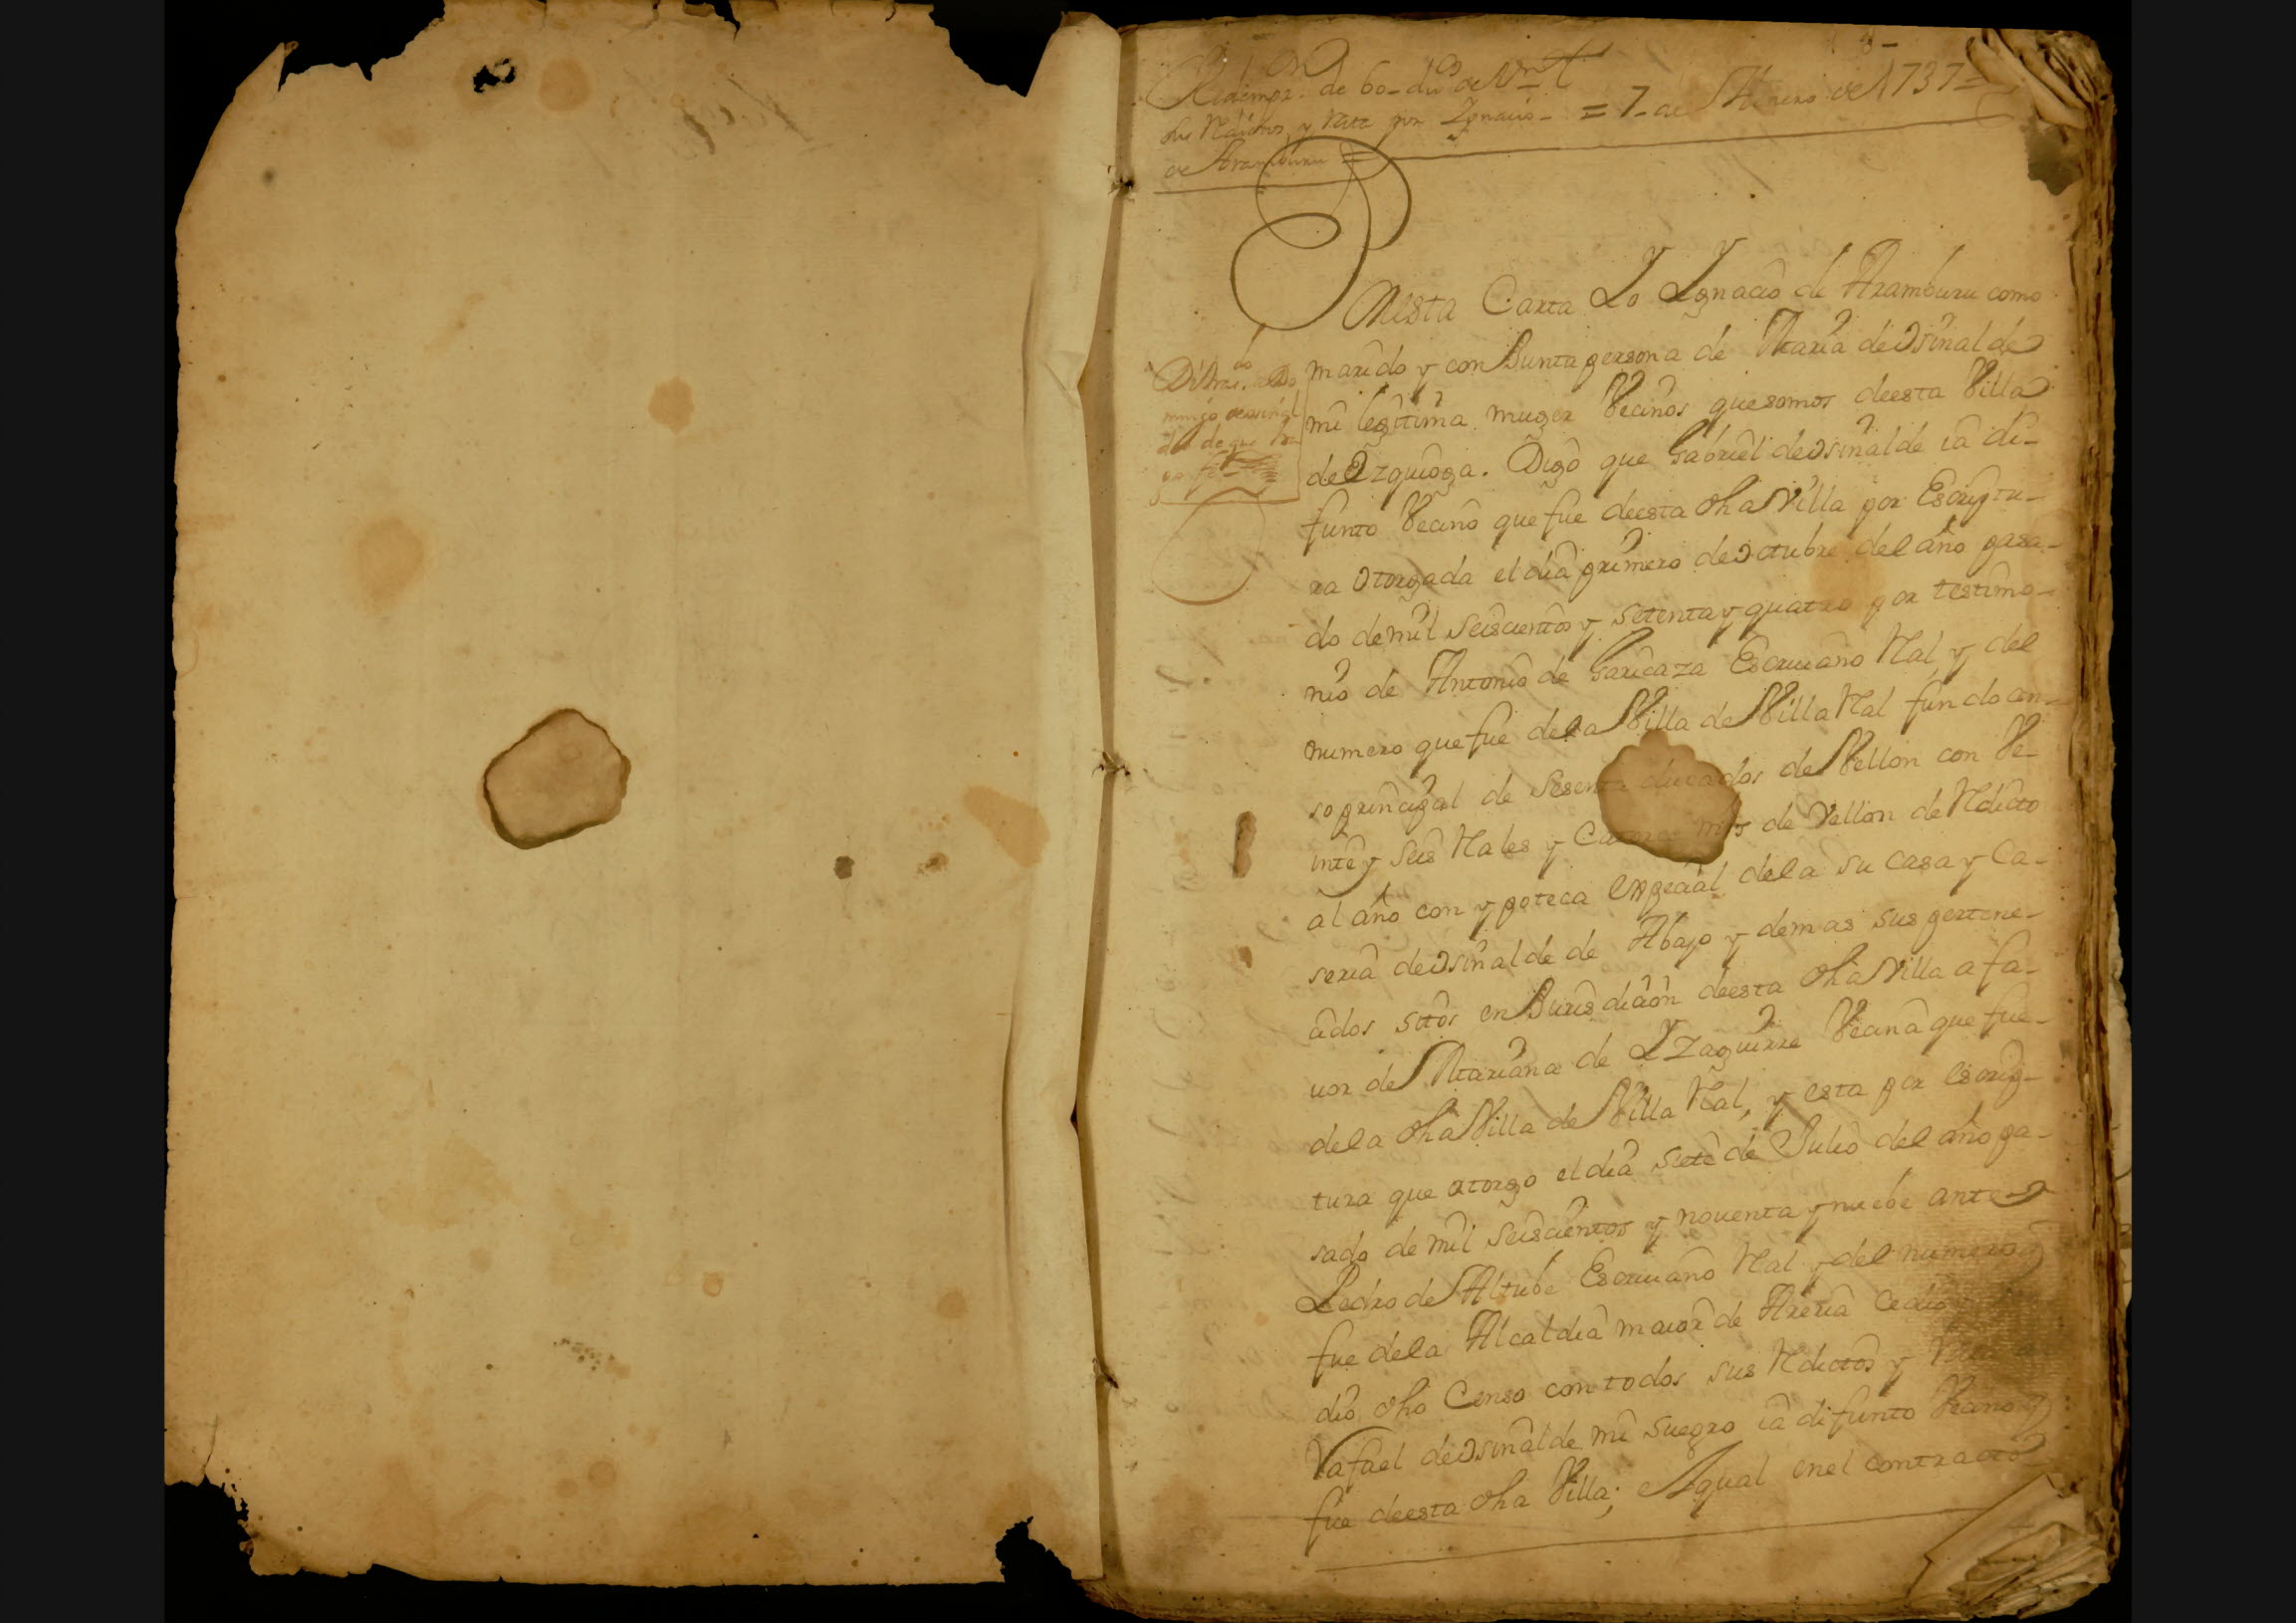 Redempz.on de 60 du.os de V.on
sus Rditos y rata por Ygnacio = 7 de Henero de 1737 =
de Aramburu =
En esta Carta Yo Ygnacio de Aramburu como
marido y conJunta persona de Maria de Osinalde
mi legitima muger Vecinos que somos de esta Villa
de Ezquioga. Digo que Gabriel de Osinalde ia di-
funto Vecino que fue de esta dha Villa por Escriptu-
ra Otorgada el dia primero de Octubre del año pasa-
do de mil seiscientos y setenta y quatro por testimo-
nio de Antonio de Garicaza Escriuano Ral y del
numero que fue de la Villa de Villa Ral fundo cen-
so principal de Sesenta ducados de Vellon con Ve-
inte y seis Rales y Catorce mrs de Vellon de Rdicto
al año con ypoteca expecial de la su casa y Ca-
seria de Osinalde de Abajo y demas sus pertene-
cidos sitos en Jurisdicion de esta dha Villa a fa-
uor de Mariana de Yzaguirre Vecina que fue
de la dha Villa de Villa Ral, y esta por escrip-
tura que otorgo el dia siete de Julio del año pa-
sado de mil seiscientos y nouenta y nuebe ante
Pedro de Altube Escriuano Ral y del numero
fue de la Alcaldia maior de Areria Cedio
dio dho Censo con todos sus Rdictos y
Rafael de Osinalde mi suegro ia difunto Vecino
fue de esta dha Villa; el qual en el contracto
Domingo de Osinal
de de que